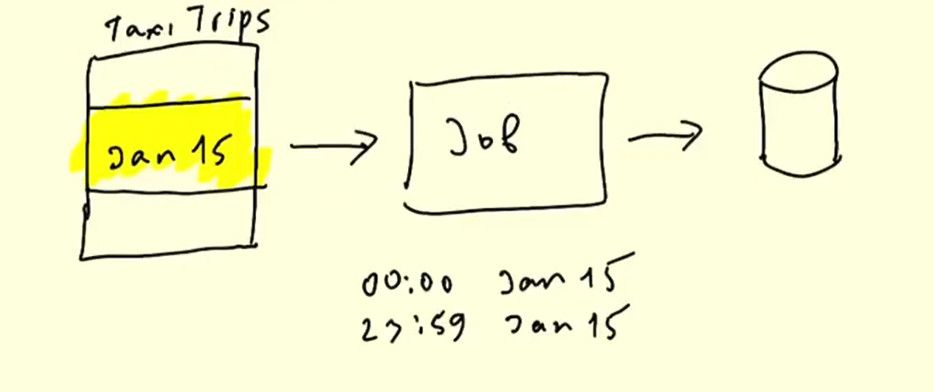 Taxi Trips
Jan 15
Job
00:00 Jan 15
23:59 Jan 15